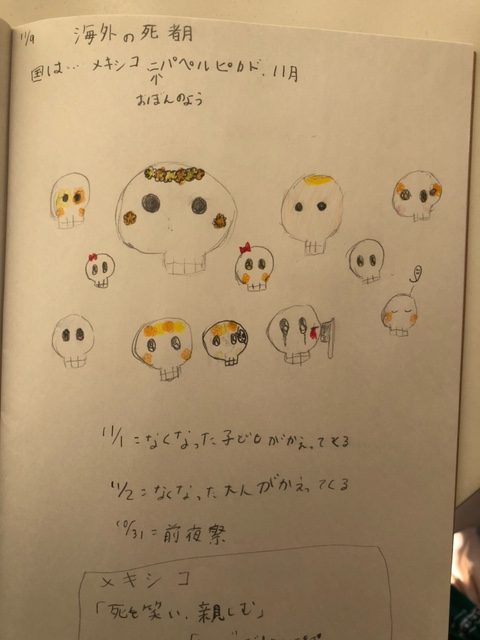 11/9 海外の死者月
国は… メキシコ 二 パペルピカド. 11月
小
おぼんのよう
11/1 = なくなった子どもがかえってくる
11/2 = なくなった大人がかえってくる
10/31 = 前夜祭
メキシコ
「死を笑い、親しむ」